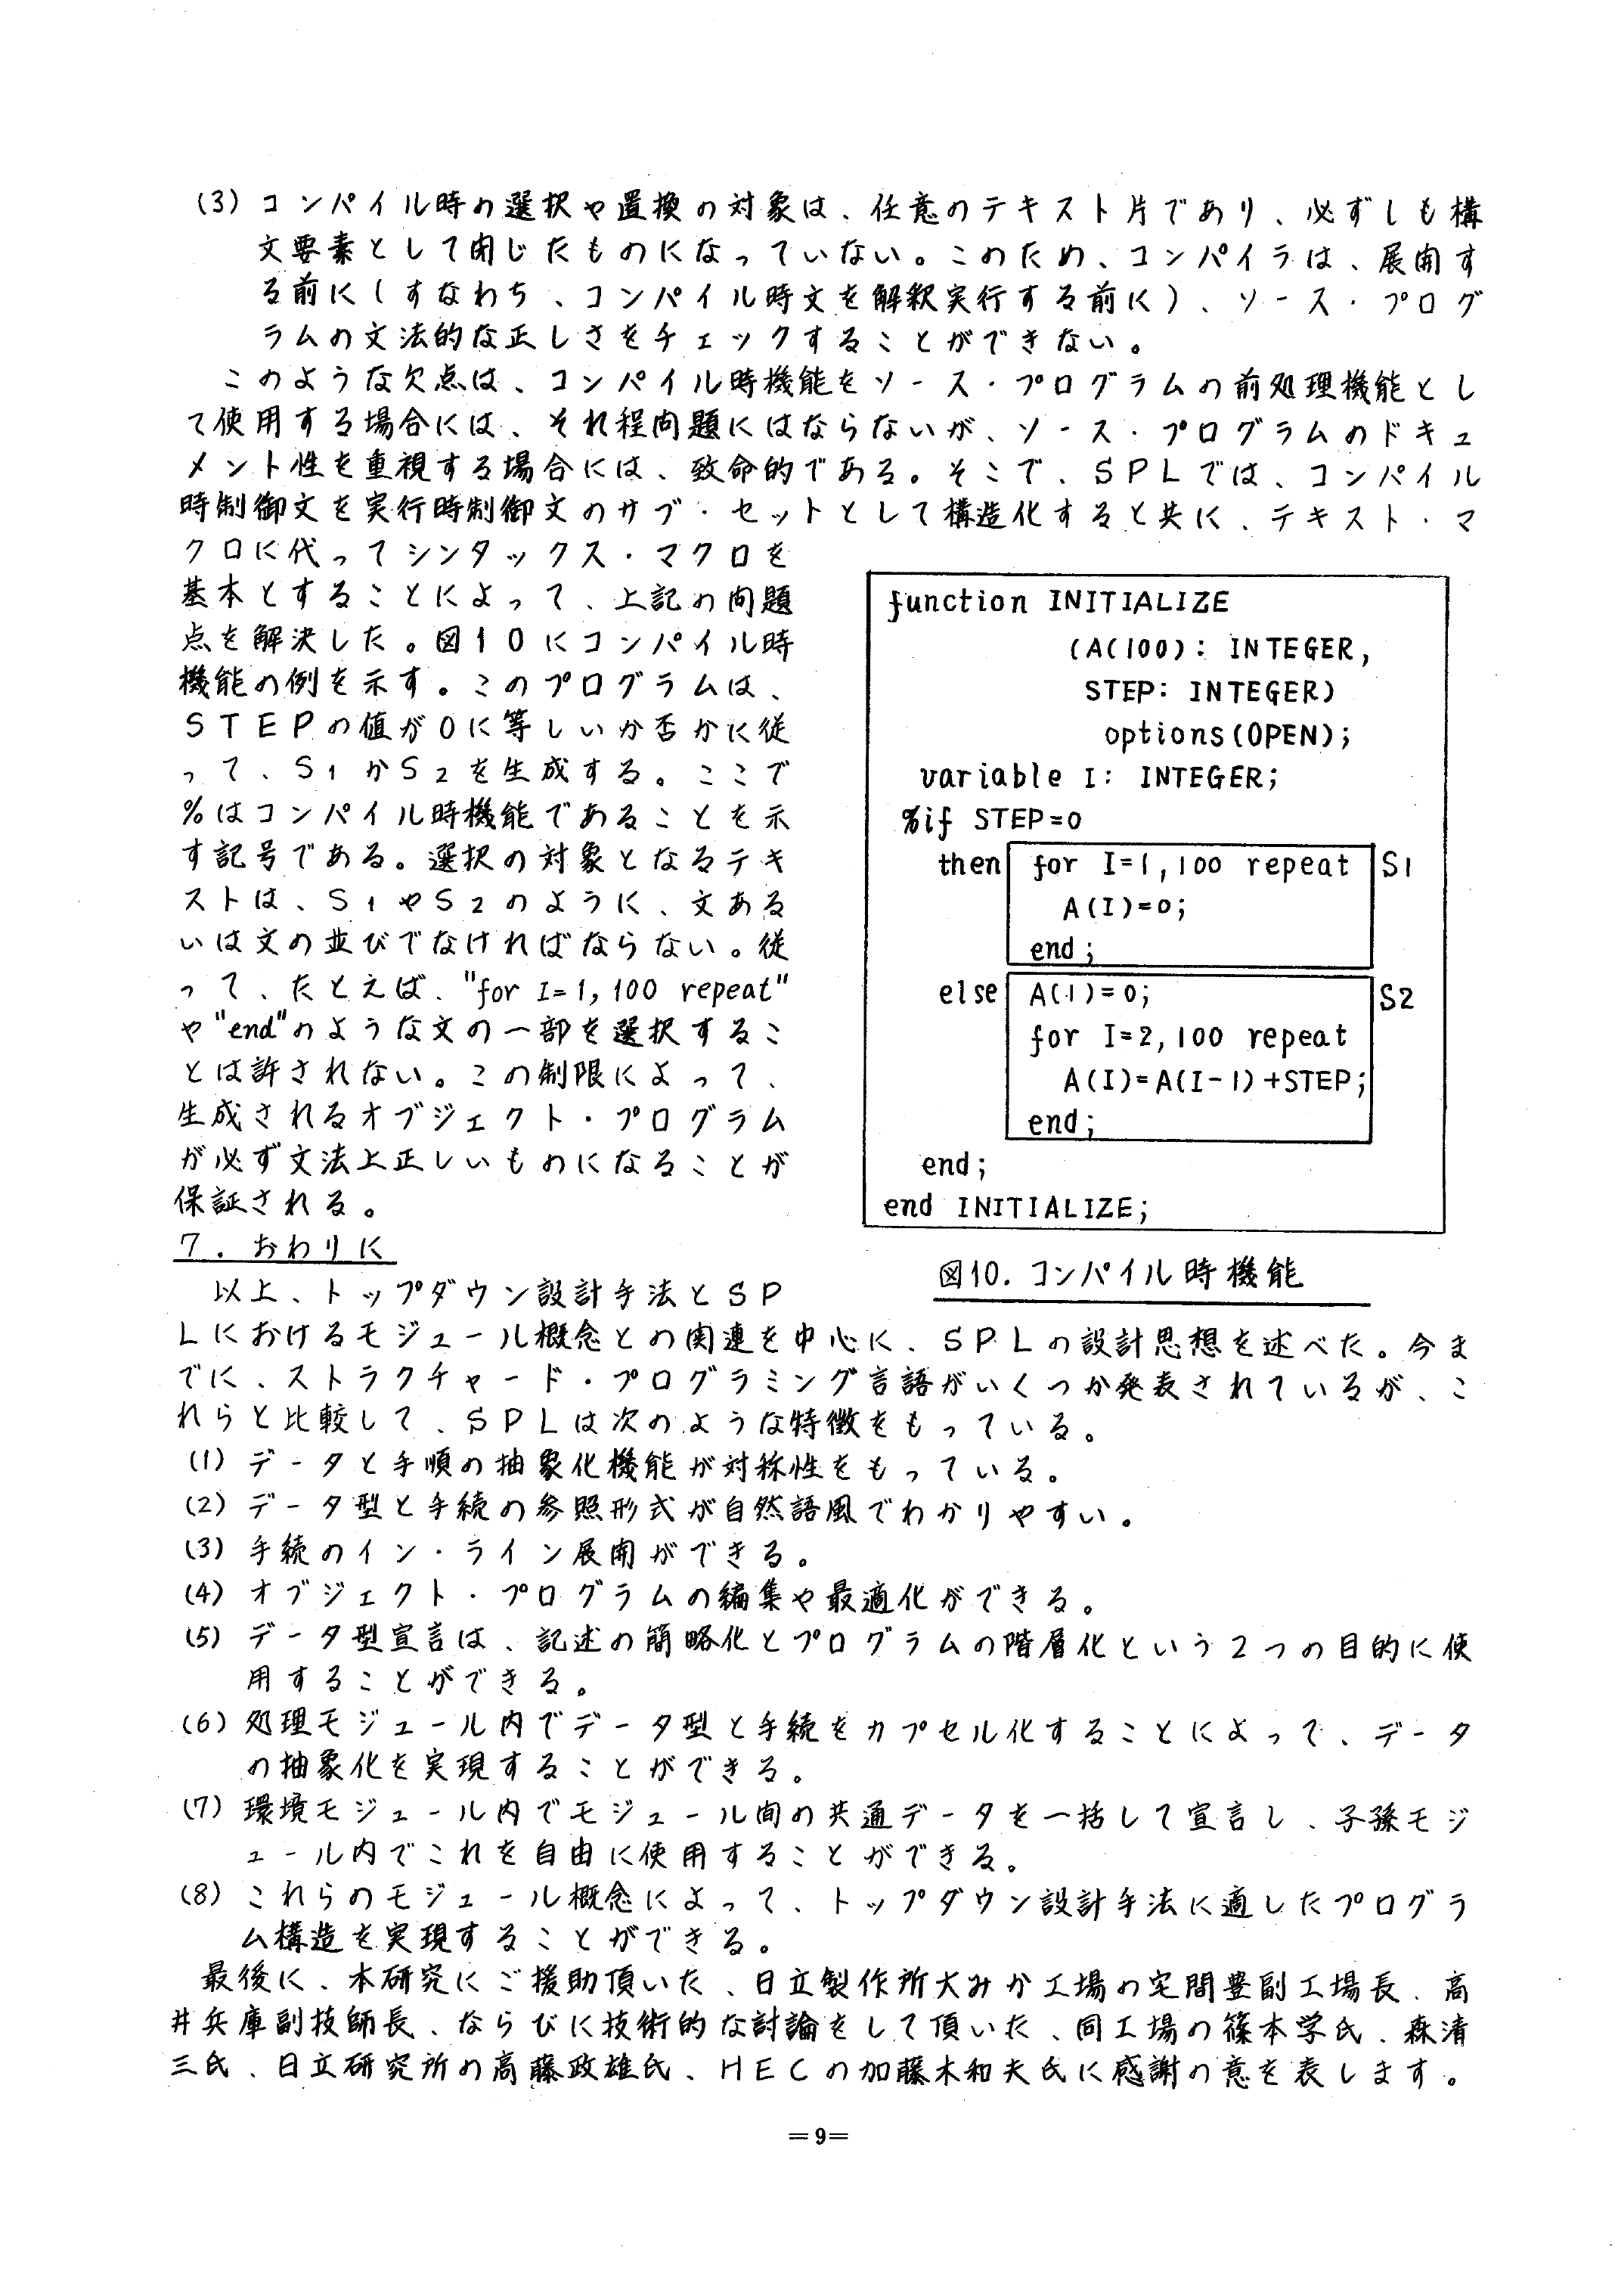 (3) コンパイル時の選択や置換の対象は、任意のテキスト片であり、必ずしも構
文要素として閉じたものになっていない。このため、コンパイラは、展開す
る前に(すなわち、コンパイル時文を解釈実行する前に)、ソース・プログ
ラムの文法的な正しさをチェックすることができない。
このような欠点は、コンパイル時機能をソース・プログラムの前処理機能とし
て使用する場合には、それ程問題にはならないが、ソース・プログラムのドキュ
メント性を重視する場合には、致命的である。そこで、SPLでは、コンパイル
時制御文を実行時制御文のサブ・セットとして構造化すると共に、テキスト・マ
クロに代ってシンタックス・マクロを
基本とすることによって、上記の問題
点を解決した。図10にコンパイル時
機能の例を示す。このプログラムは、
STEPの値が0に等しいか否かに従
って、S1かS2を生成する。ここで
%はコンパイル時機能であることを示
す記号である。選択の対象となるテキ
ストは、S1やS2のように、文ある
いは文の並びでなければならない。従
って、たとえば、"for I=1,100 repeat"
や"end"のような文の一部を選択するこ
とは許されない。この制限によって、
生成されるオブジェクト・プログラム
が必ず文法上正しいものになることが
保証される。
function INITIALIZE
(A(100): INTEGER,
STEP: INTEGER)
options(OPEN);
variable I: INTEGER;
%if STEP=0
then for I=1,100 repeat S1
A(I)=0;
end;
else A(1)=0; S2
for I=2,100 repeat
A(I)=A(I-1)+STEP;
end;
end;
end INITIALIZE;
図10. コンパイル時機能
7. おわりに
以上、トップダウン設計手法とSP
Lにおけるモジュール概念との関連を中心に、SPLの設計思想を述べた。今ま
でに、ストラクチャード・プログラミング言語がいくつか発表されているが、こ
れらと比較して、SPLは次のような特徴をもっている。
(1) データと手順の抽象化機能が対称性をもっている。
(2) データ型と手続の参照形式が自然語風でわかりやすい。
(3) 手続のイン・ライン展開ができる。
(4) オブジェクト・プログラムの編集や最適化ができる。
(5) データ型宣言は、記述の簡略化とプログラムの階層化という2つの目的に使
用することができる。
(6) 処理モジュール内でデータ型と手続をカプセル化することによって、データ
の抽象化を実現することができる。
(7) 環境モジュール内でモジュール間の共通データを一括して宣言し、子孫モジ
ュール内でこれを自由に使用することができる。
(8) これらのモジュール概念によって、トップダウン設計手法に適したプログラ
ム構造を実現することができる。
最後に、本研究にご援助頂いた、日立製作所大みか工場の宅間豊副工場長、高
井兵庫副技師長、ならびに技術的な討論をして頂いた、同工場の篠本学氏、森清
三氏、日立研究所の高藤政雄氏、HECの加藤木和夫氏に感謝の意を表します。
=9=